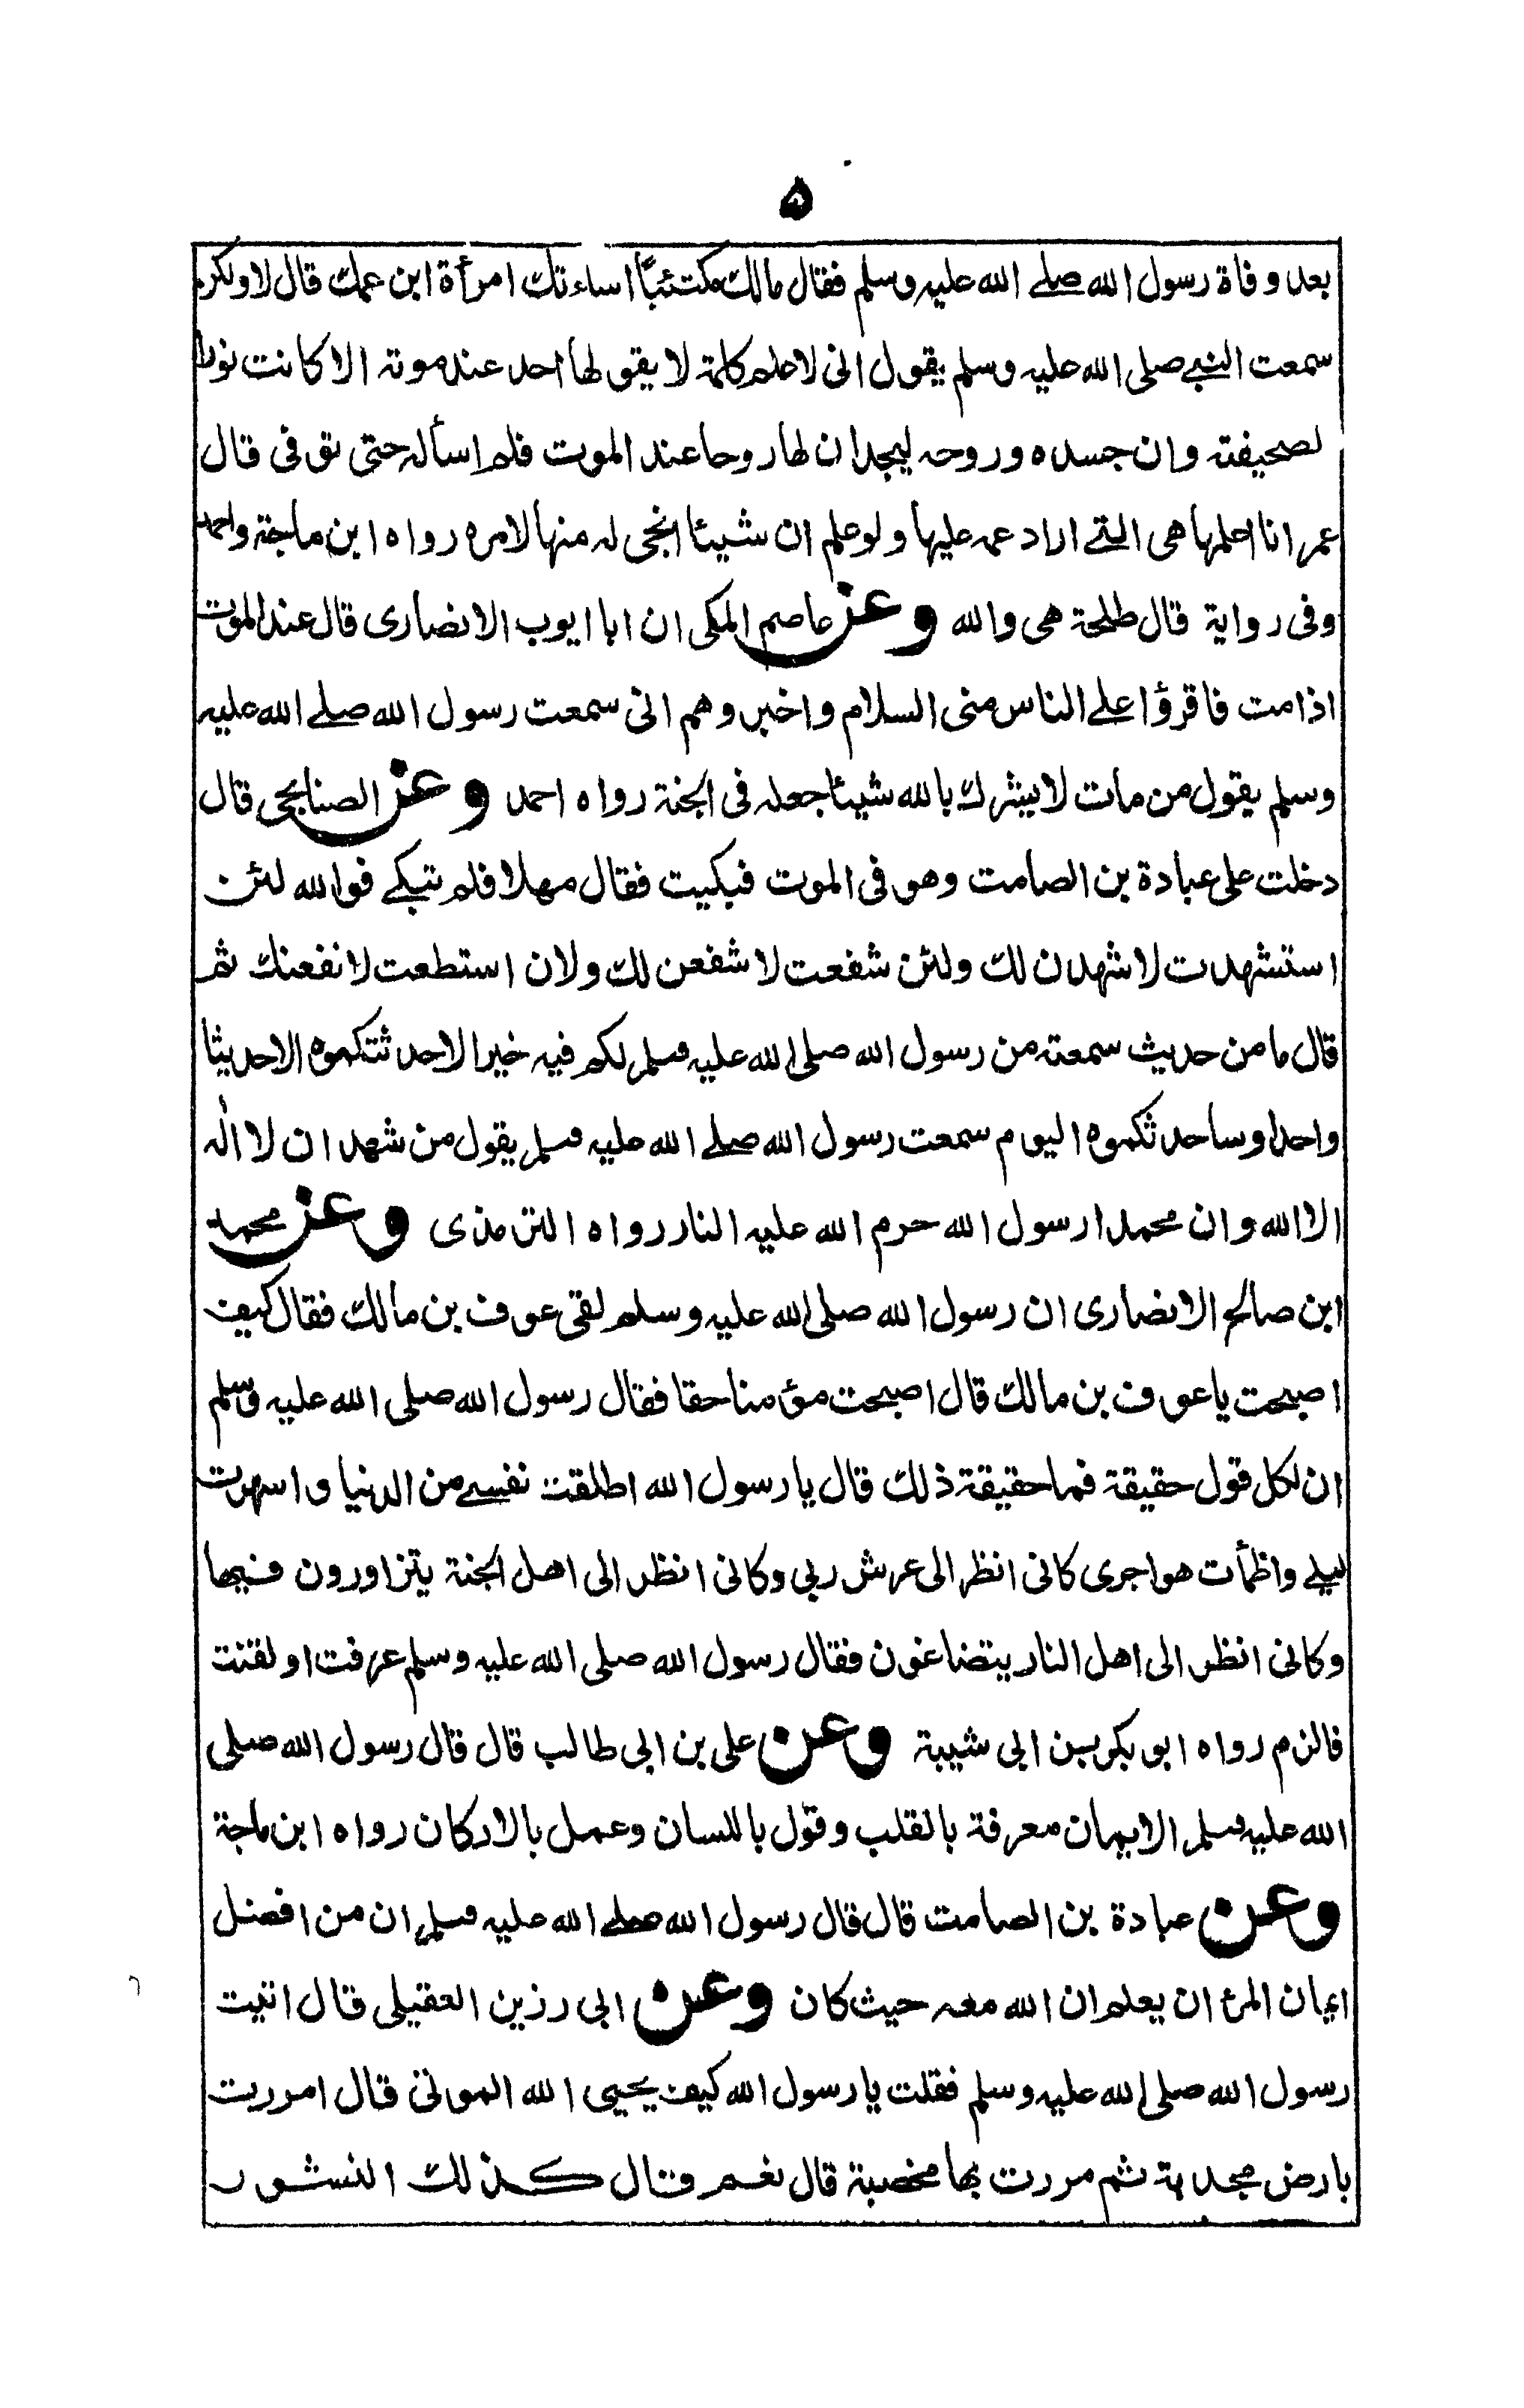 ۵
بعد وفاة رسول الله صلے الله عليه وسلم فقال مالك مكتئبًا اساءتك امرأة ابن عمك قال لا ولكن
سمعت النبے صلى الله عليه وسلم يقول انى لاعلم كلمة لا يقولها احد عند موته الا كانت نورا
لصحيفته وان جسده وروحه ليجدان لها روحا عند الموت فلم اسأله حتى توفى قال
عمر انا اعلمها هى التے اراد عمه عليها ولو علم ان شيئا انجى له منها لامره رواه ابن ماجة واحمد
وفى رواية قال طلحة هى والله وعن عاصم المكى ان ابا ايوب الانصارى قال عند الموت
اذا مت فاقرؤا علے الناس منى السلام واخبروهم انى سمعت رسول الله صلے الله عليه
وسلم يقول من مات لا يشرك بالله شيئا جعله فى الجنة رواه احمد وعن الصنابحى قال
دخلت على عبادة بن الصامت وهو فى الموت فبكيت فقال مهلا فلم تبكے فوالله لئن
استشهدت لاشهدن لك ولئن شفعت لاشفعن لك ولان استطعت لانفعنك ثم
قال ما من حديث سمعته من رسول الله صلى الله عليه وسلم لكم فيه خير الا حدثتكموه الا حديثا
واحدا وساحدثكموه اليوم سمعت رسول الله صلے الله عليه وسلم يقول من شهد ان لا اله
الا الله وان محمدا رسول الله حرم الله عليه النار رواه الترمذى وعن محمد
ابن صالح الانصارى ان رسول الله صلى الله عليه وسلم لقى عوف بن مالك فقال كيف
اصبحت يا عوف بن مالك قال اصبحت مؤمنا حقا فقال رسول الله صلى الله عليه وسلم
ان لكل قول حقيقة فما حقيقة ذلك قال يا رسول الله اطلقت نفسے من الدنيا واسهرت
ليلے واظمأت هواجرى كانى انظر الى عرش ربى وكانى انظر الى اهل الجنة يتزاورون فيها
وكانى انظر الى اهل النار يتضاغون فقال رسول الله صلى الله عليه وسلم عرفت او لقنت
فالزم رواه ابو بكر بن ابى شيبة وعن على بن ابى طالب قال قال رسول الله صلى
الله عليه وسلم الايمان معرفة بالقلب وقول باللسان وعمل بالاركان رواه ابن ماجة
وعن عبادة بن الصامت قال قال رسول الله صلے الله عليه وسلم ان من افضل
ايمان المرء ان يعلم ان الله معه حيث كان وعن ابى رزين العقيلى قال اتيت
رسول الله صلى الله عليه وسلم فقلت يا رسول الله كيف يحيى الله الموتى قال امررت
بارض مجدبة ثم مررت بها مخصبة قال نعم قال كذلك النشور